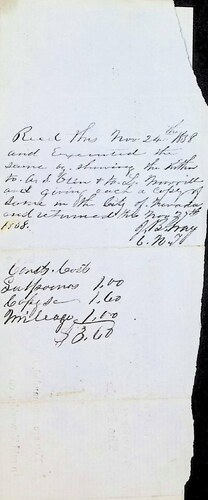 Recd this Nov 24th 1858
and Executed the
same by showing the within
to A.J. & W.G.
and giving each a copy of
same in the City of Nevada
and returned this Nov 27th
1858.
J.B. Gray
Consts. Costs
Subpoenas 1.00
Copys 1.60
Mileage 1.00
$3.60